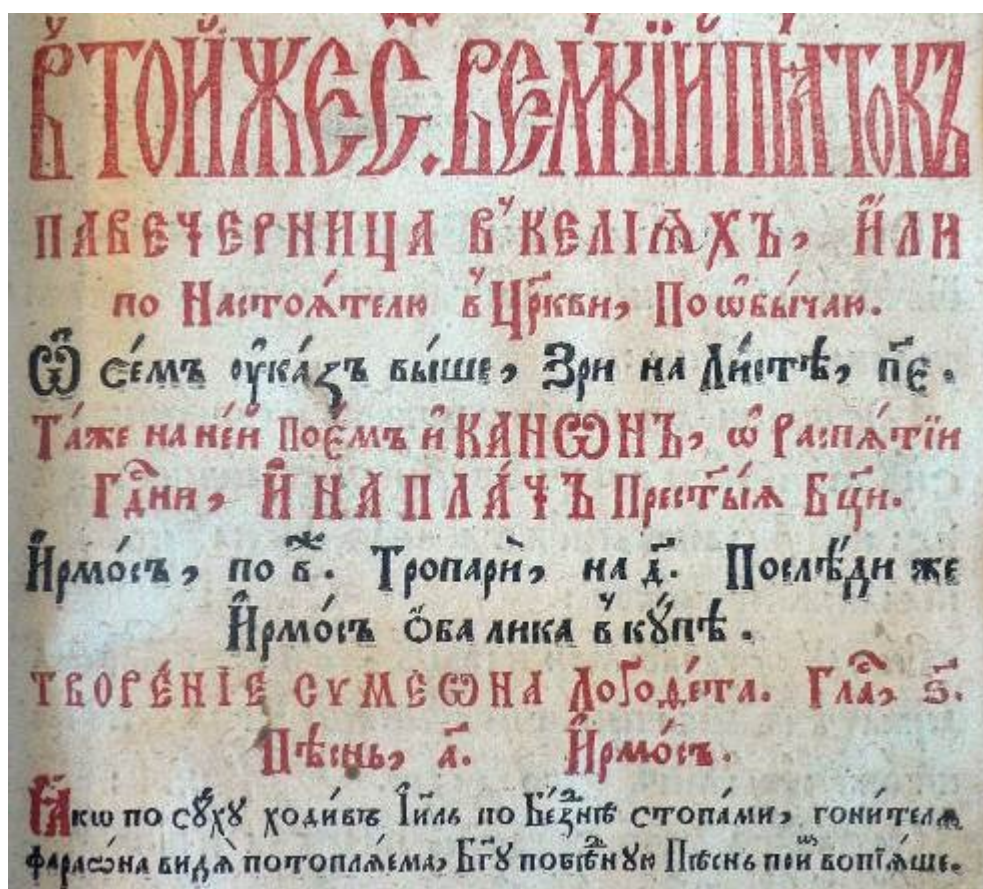 В҆ ТОЙЖЕ С. ВЕЛИ́КІЙ ПѦТОКЪ
ПАВЕЧЕРНИЦА В̾ КЕЛІѦХЪ, И҆ЛИ
по Настоѧ́телю в̾ Цр҃кви, По ѡ҆бы́чаю.
Ѽ се́мъ оу҆ка́зъ вы́ше, Зри на Ли́стѣ, п҃е.
Та́же на не́й Пое́мъ и҆ КАНѠНЪ, ѡ҆ Распѧ́тїи
Гдⷭ҇ни, И҆ НА ПЛА́ЧЪ Прест҃ы́ѧ Бц҃и.
И҆рмо́съ, по в҃. Тропарѝ, на д҃. Послѣ́ди же
И҆рмо́съ ѻ҆ба лика в̾ кꙋ́пѣ.
ТВОРЕ́НІЕ СѴМЕѠНА Логоѳе́та. Глаⷭ҇, ѕ҃.
Пѣ́снь, а҃. И҆рмо́съ.
Ꙗ҆́кѡ по сꙋ́хꙋ ходи́въ І҆и҃ль по Бе́зⷣнѣ стопа́ми, гони́телѧ
фараѡ́на ви́дѧ̀ потоплѧ́ема, Бг҃ꙋ побѣ́днꙋю Пѣснь пои́мъ вопїѧ́ше.